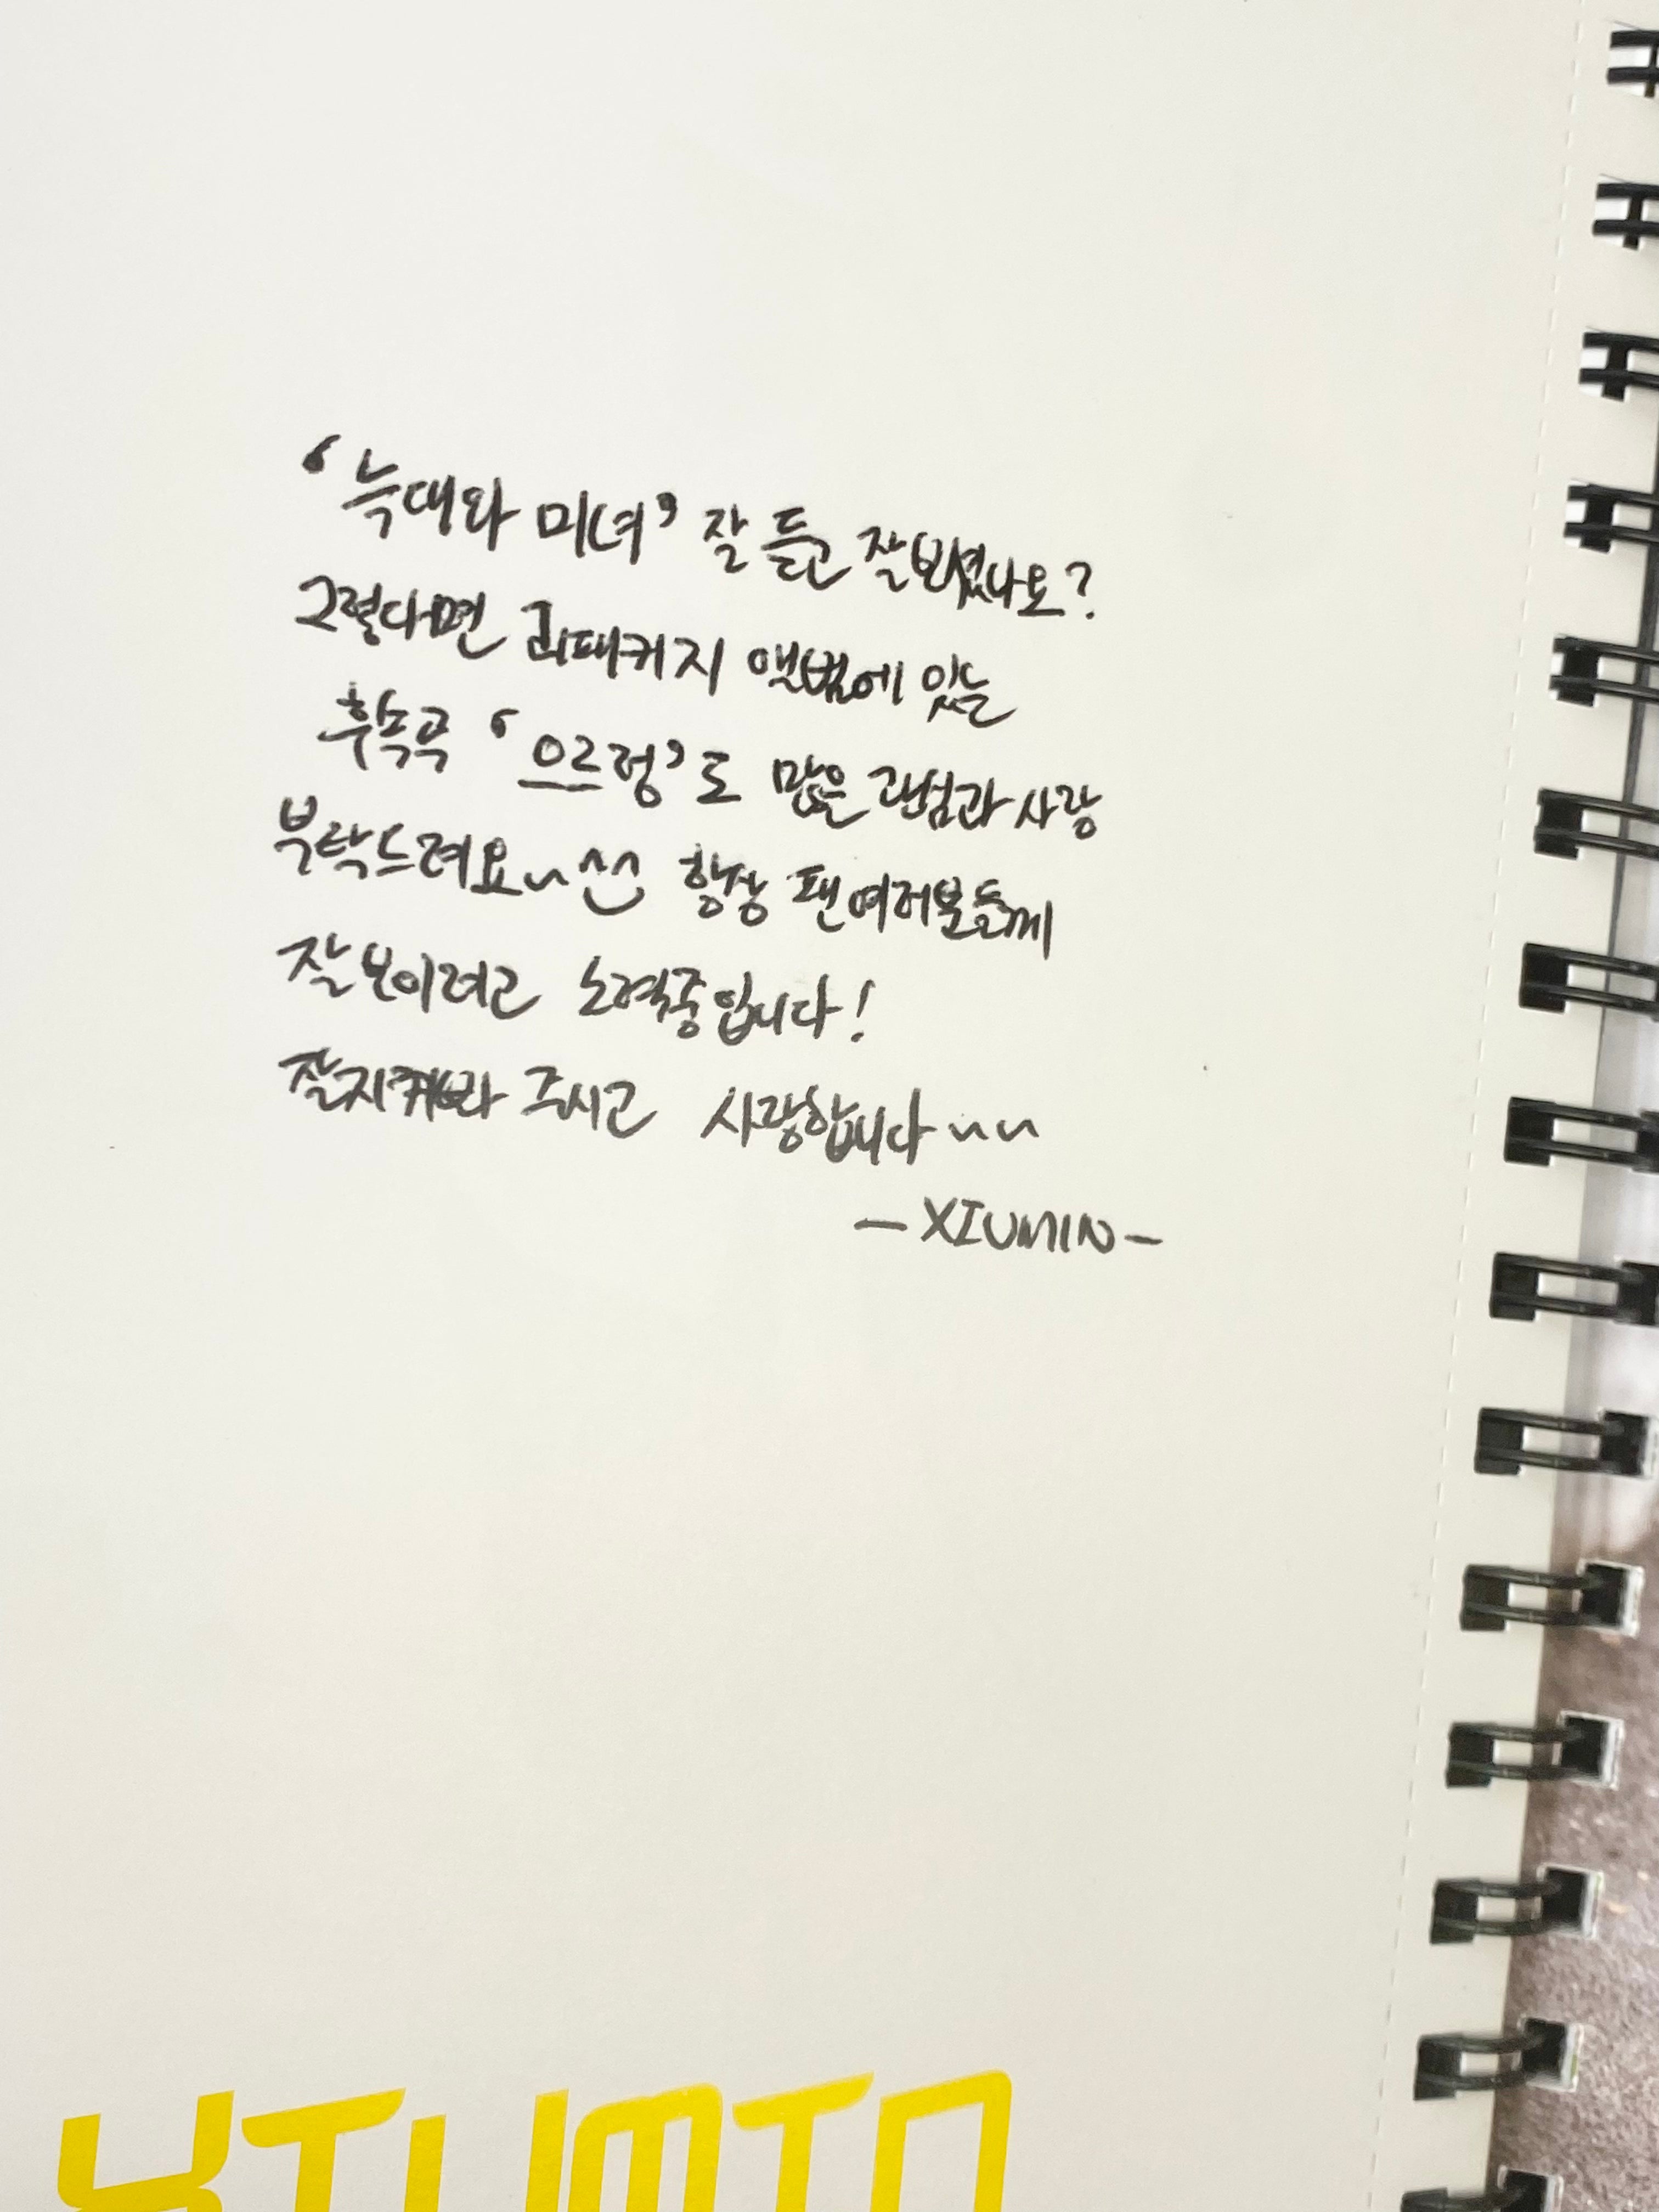 ‘늑대와 미녀’ 잘 듣고 잘 보셨나요?
그렇다면 리패키지 앨범에 있는
후속곡 ‘으르렁’도 많은 관심과 사랑
부탁드려요~^^ 항상 팬여러분들께
잘 보이려고 노력중입니다!
잘 지켜봐 주시고 사랑합니다~~
-XIUMIN-
XIUMIN